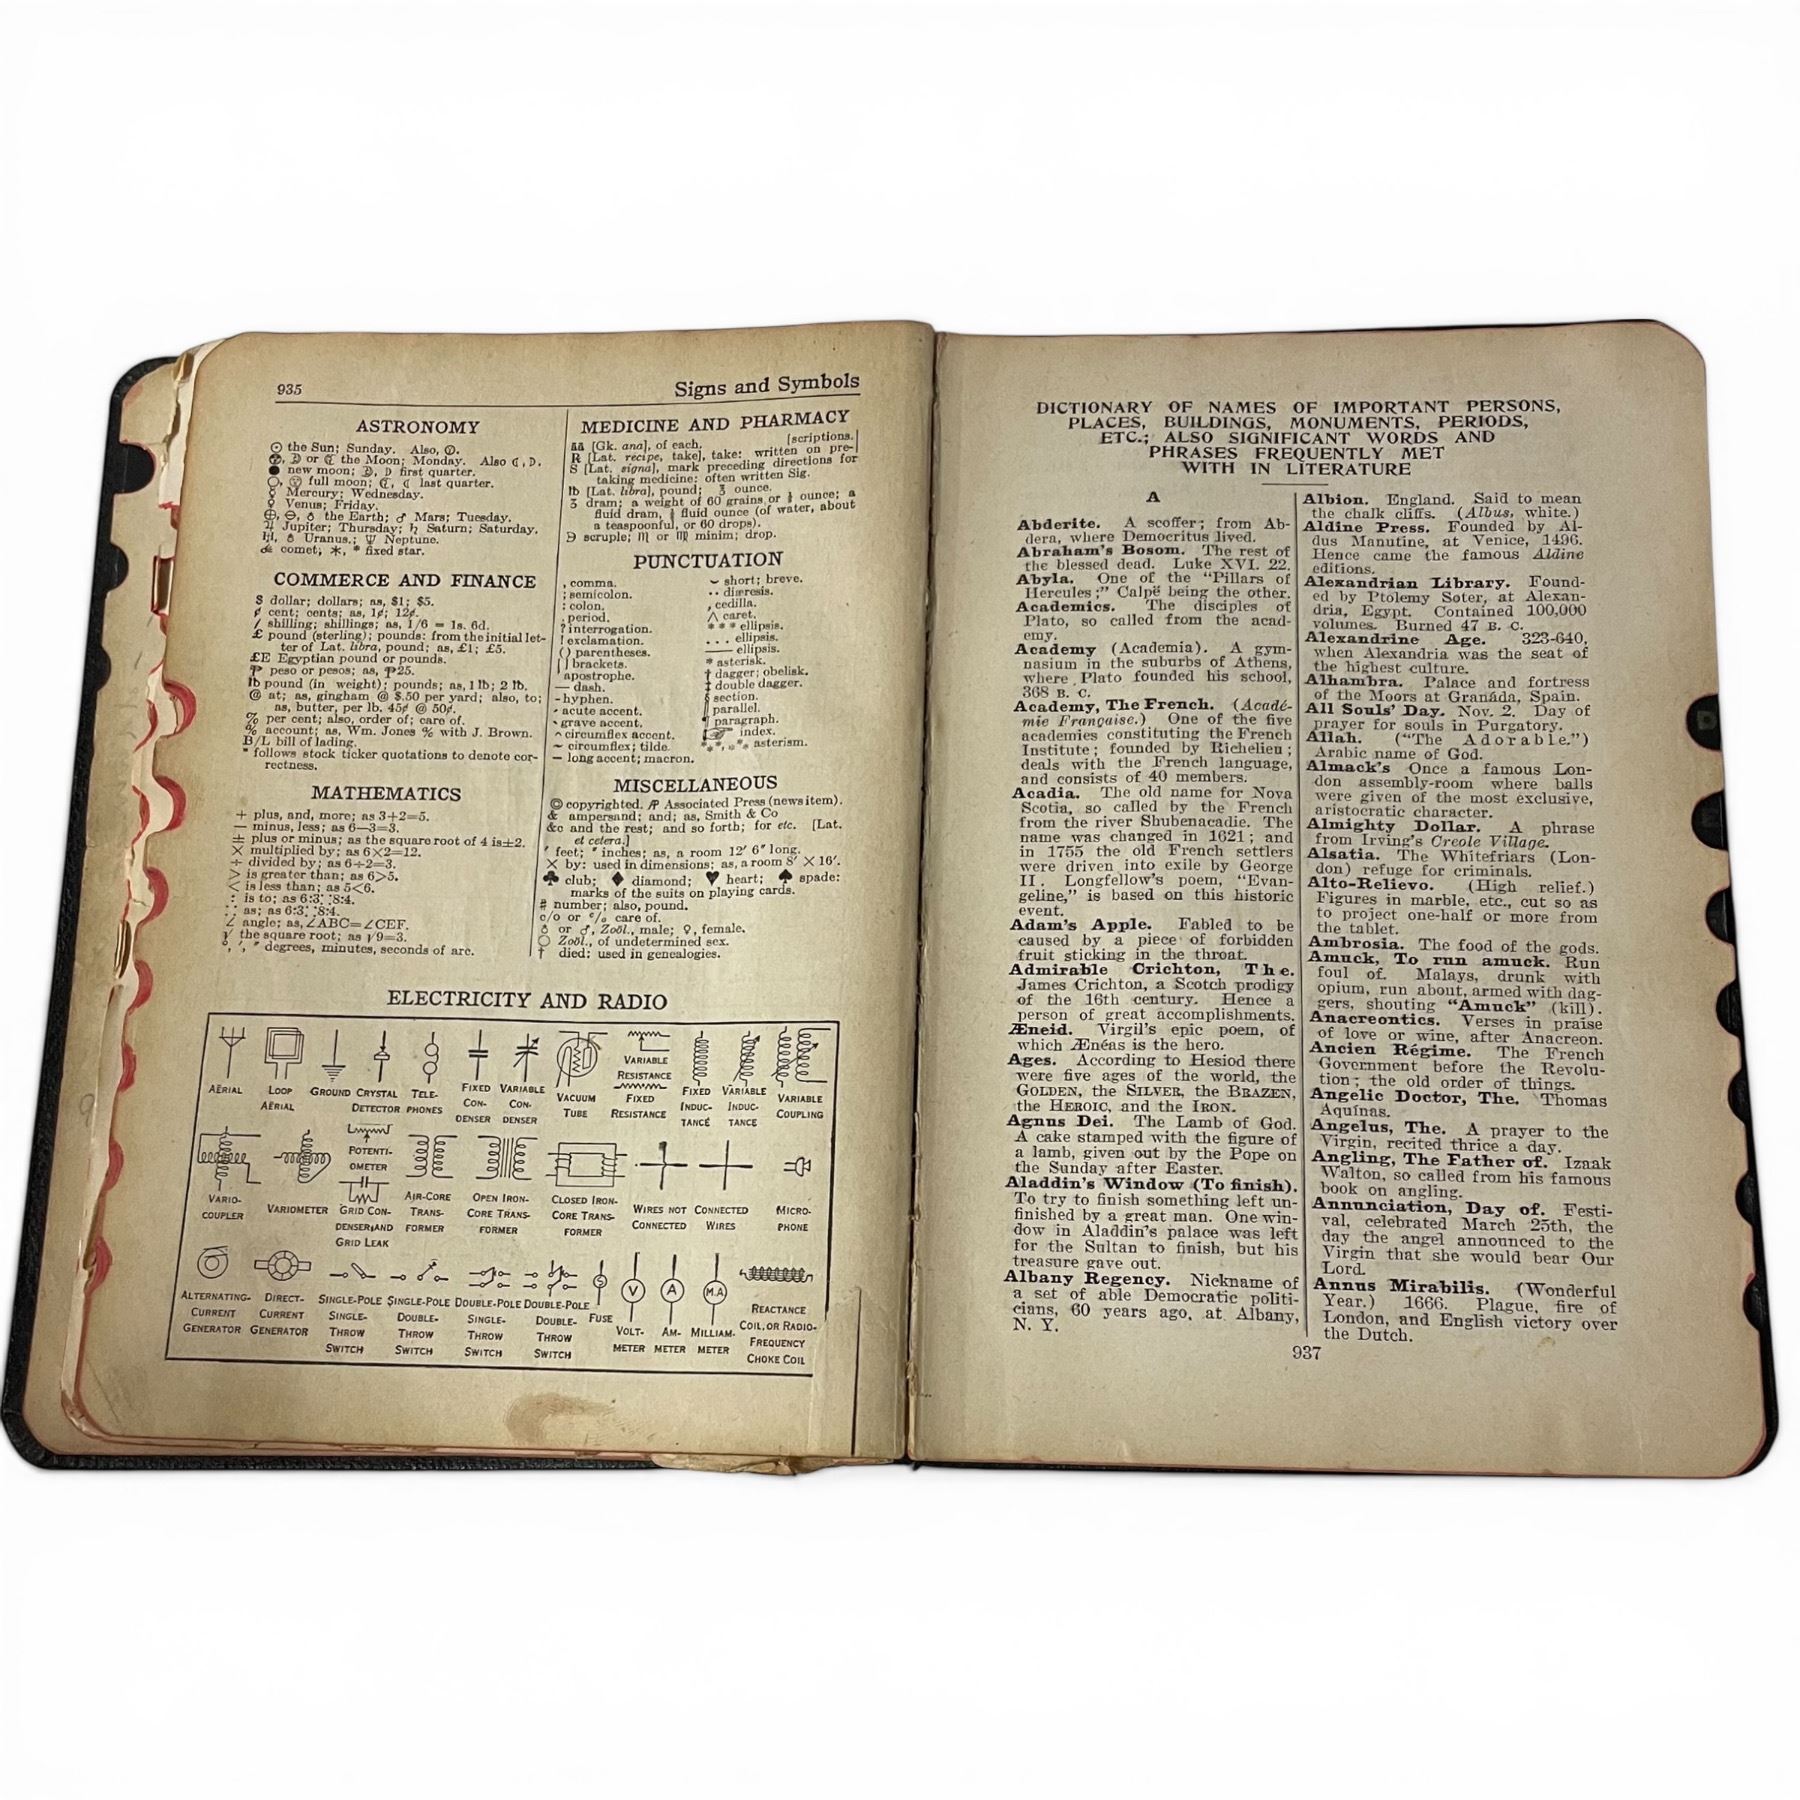 935
Signs and Symbols
ASTRONOMY
☉ the Sun; Sunday. Also,
or ☾ the Moon; Monday. Also ☾, ☽.
● new moon; ☽, ☽ first quarter.
○, full moon; ☾, ☾ last quarter.
☿ Mercury; Wednesday.
♀ Venus; Friday.
⊕, ⊖, ♁ the Earth; ♂ Mars; Tuesday.
♃ Jupiter; Thursday; ♄ Saturn; Saturday.
♅, Uranus.; ♆ Neptune.
☄ comet; ✶, * fixed star.
COMMERCE AND FINANCE
$ dollar; dollars; as, $1; $5.
¢ cent; cents; as, 1¢; 12¢.
/ shilling; shillings; as, 1/6 = 1s. 6d.
£ pound (sterling); pounds: from the initial let-
ter of Lat. libra, pound; as, £1; £5.
£E Egyptian pound or pounds.
₱ peso or pesos; as, ₱25.
℔ pound (in weight); pounds; as, 1 ℔; 2 ℔.
@ at; as, gingham @ $.50 per yard; also, to;
as, butter, per lb. 45¢ @ 50¢.
% per cent; also, order of; care of.
% account; as, Wm. Jones % with J. Brown.
B/L bill of lading.
" follows stock ticker quotations to denote cor-
rectness.
MATHEMATICS
+ plus, and, more; as 3+2=5.
— minus, less; as 6—3=3.
± plus or minus; as the square root of 4 is ±2.
× multiplied by; as 6×2=12.
÷ divided by; as 6÷2=3.
> is greater than; as 6>5.
< is less than; as 5<6.
: is to; as 6:3::8:4.
:: as; as 6:3::8:4.
∠ angle; as, ∠ABC=∠CEF.
√ the square root; as √9=3.
°, ′, ″ degrees, minutes, seconds of arc.
MEDICINE AND PHARMACY
āā [Gk. ana], of each. [scriptions.
R [Lat. recipe, take], take: written on pre-]
S [Lat. signa], mark preceding directions for
taking medicine: often written Sig.
℔ [Lat. libra], pound; ℥ ounce.
ʒ dram; a weight of 60 grains or ⅛ ounce; a
fluid dram, ⅛ fluid ounce (of water, about
a teaspoonful, or 60 drops).
℈ scruple; ♏ or ♍ minim; drop.
PUNCTUATION
, comma.
; semicolon.
: colon.
. period.
? interrogation.
! exclamation.
( ) parentheses.
[ ] brackets.
' apostrophe.
— dash.
- hyphen.
´ acute accent.
` grave accent.
^ circumflex accent.
~ circumflex; tilde.
– long accent; macron.
˘ short; breve.
·· diæresis.
¸ cedilla.
^ caret.
* * * ellipsis.
. . . ellipsis.
—— ellipsis.
* asterisk.
† dagger; obelisk.
‡ double dagger.
§ section.
‖ parallel.
¶ paragraph.
☞ index.
*⁎*, ⁎*⁎ asterism.
MISCELLANEOUS
© copyrighted. AP Associated Press (news item).
& ampersand; and; as, Smith & Co
&c and the rest; and so forth; for etc. [Lat.
et cetera.]
′ feet; ″ inches; as, a room 12′ 6″ long.
× by: used in dimensions; as, a room 8′ × 16′.
♣ club; ♦ diamond; ♥ heart; ♠ spade:
marks of the suits on playing cards.
# number; also, pound.
c/o or c/o care of.
♁ or ♂, Zoöl., male; ♀, female.
○ Zoöl., of undetermined sex.
† died; used in genealogies.
ELECTRICITY AND RADIO
AËRIAL
LOOP
AËRIAL
GROUND
CRYSTAL
DETECTOR
TELE-
PHONES
FIXED
CON-
DENSER
VARIABLE
CON-
DENSER
VACUUM
TUBE
VARIABLE
RESISTANCE
FIXED
RESISTANCE
FIXED
INDUC-
TANCE
VARIABLE
INDUC-
TANCE
VARIABLE
COUPLING
VARIO-
COUPLER
VARIOMETER
POTENTI-
OMETER
GRID CON-
DENSER AND
GRID LEAK
AIR-CORE
TRANS-
FORMER
OPEN IRON-
CORE TRANS-
FORMER
CLOSED IRON-
CORE TRANS-
FORMER
WIRES NOT
CONNECTED
CONNECTED
WIRES
MICRO-
PHONE
ALTERNATING-
CURRENT
GENERATOR
DIRECT-
CURRENT
GENERATOR
SINGLE-POLE
SINGLE-
THROW
SWITCH
SINGLE-POLE
DOUBLE-
THROW
SWITCH
DOUBLE-POLE
SINGLE-
THROW
SWITCH
DOUBLE-POLE
DOUBLE-
THROW
SWITCH
FUSE
V
VOLT-
METER
A
AM-
METER
M.A
MILLIAM-
METER
REACTANCE
COIL, OR RADIO-
FREQUENCY
CHOKE COIL
DICTIONARY OF NAMES OF IMPORTANT PERSONS,
PLACES, BUILDINGS, MONUMENTS, PERIODS,
ETC.; ALSO SIGNIFICANT WORDS AND
PHRASES FREQUENTLY MET
WITH IN LITERATURE
A
Abderite. A scoffer; from Ab-
dera, where Democritus lived.
Abraham's Bosom. The rest of
the blessed dead. Luke XVI. 22.
Abyla. One of the "Pillars of
Hercules;" Calpë being the other.
Academics. The disciples of
Plato, so called from the acad-
emy.
Academy (Academia). A gym-
nasium in the suburbs of Athens,
where Plato founded his school,
368 B. C.
Academy, The French. (Acadé-
mie Française.) One of the five
academies constituting the French
Institute; founded by Richelieu;
deals with the French language,
and consists of 40 members.
Acadia. The old name for Nova
Scotia, so called by the French
from the river Shubenacadie. The
name was changed in 1621; and
in 1755 the old French settlers
were driven into exile by George
II. Longfellow's poem, "Evan-
geline," is based on this historic
event.
Adam's Apple. Fabled to be
caused by a piece of forbidden
fruit sticking in the throat.
Admirable Crichton, The.
James Crichton, a Scotch prodigy
of the 16th century. Hence a
person of great accomplishments.
Æneid. Virgil's epic poem, of
which Ænéas is the hero.
Ages. According to Hesiod there
were five ages of the world, the
GOLDEN, the SILVER, the BRAZEN,
the HEROIC, and the IRON.
Agnus Dei. The Lamb of God.
A cake stamped with the figure of
a lamb, given out by the Pope on
the Sunday after Easter.
Aladdin's Window (To finish).
To try to finish something left un-
finished by a great man. One win-
dow in Aladdin's palace was left
for the Sultan to finish, but his
treasure gave out.
Albany Regency. Nickname of
a set of able Democratic politi-
cians, 60 years ago, at Albany,
N. Y.
Albion. England. Said to mean
the chalk cliffs. (Albus, white.)
Aldine Press. Founded by Al-
dus Manutine, at Venice, 1496.
Hence came the famous Aldine
editions.
Alexandrian Library. Found-
ed by Ptolemy Soter, at Alexan-
dria, Egypt. Contained 100,000
volumes. Burned 47 B. C.
Alexandrine Age. 323-640,
when Alexandria was the seat of
the highest culture.
Alhambra. Palace and fortress
of the Moors at Granáda, Spain.
All Souls' Day. Nov. 2. Day of
prayer for souls in Purgatory.
Allah. ("The Adorable.")
Arabic name of God.
Almack's Once a famous Lon-
don assembly-room where balls
were given of the most exclusive,
aristocratic character.
Almighty Dollar. A phrase
from Irving's Creole Village.
Alsatia. The Whitefriars (Lon-
don) refuge for criminals.
Alto-Relievo. (High relief.)
Figures in marble, etc., cut so as
to project one-half or more from
the tablet.
Ambrosia. The food of the gods.
Amuck, To run amuck. Run
foul of. Malays, drunk with
opium, run about, armed with dag-
gers, shouting "Amuck" (kill).
Anacreontics. Verses in praise
of love or wine, after Anacreon.
Ancien Régime. The French
Government before the Revolu-
tion; the old order of things.
Angelic Doctor, The. Thomas
Aquínas.
Angelus, The. A prayer to the
Virgin, recited thrice a day.
Angling, The Father of. Izaak
Walton, so called from his famous
book on angling.
Annunciation, Day of. Festi-
val, celebrated March 25th, the
day the angel announced to the
Virgin that she would bear Our
Lord.
Annus Mirabilis. (Wonderful
Year.) 1666. Plague, fire of
London, and English victory over
the Dutch.
937